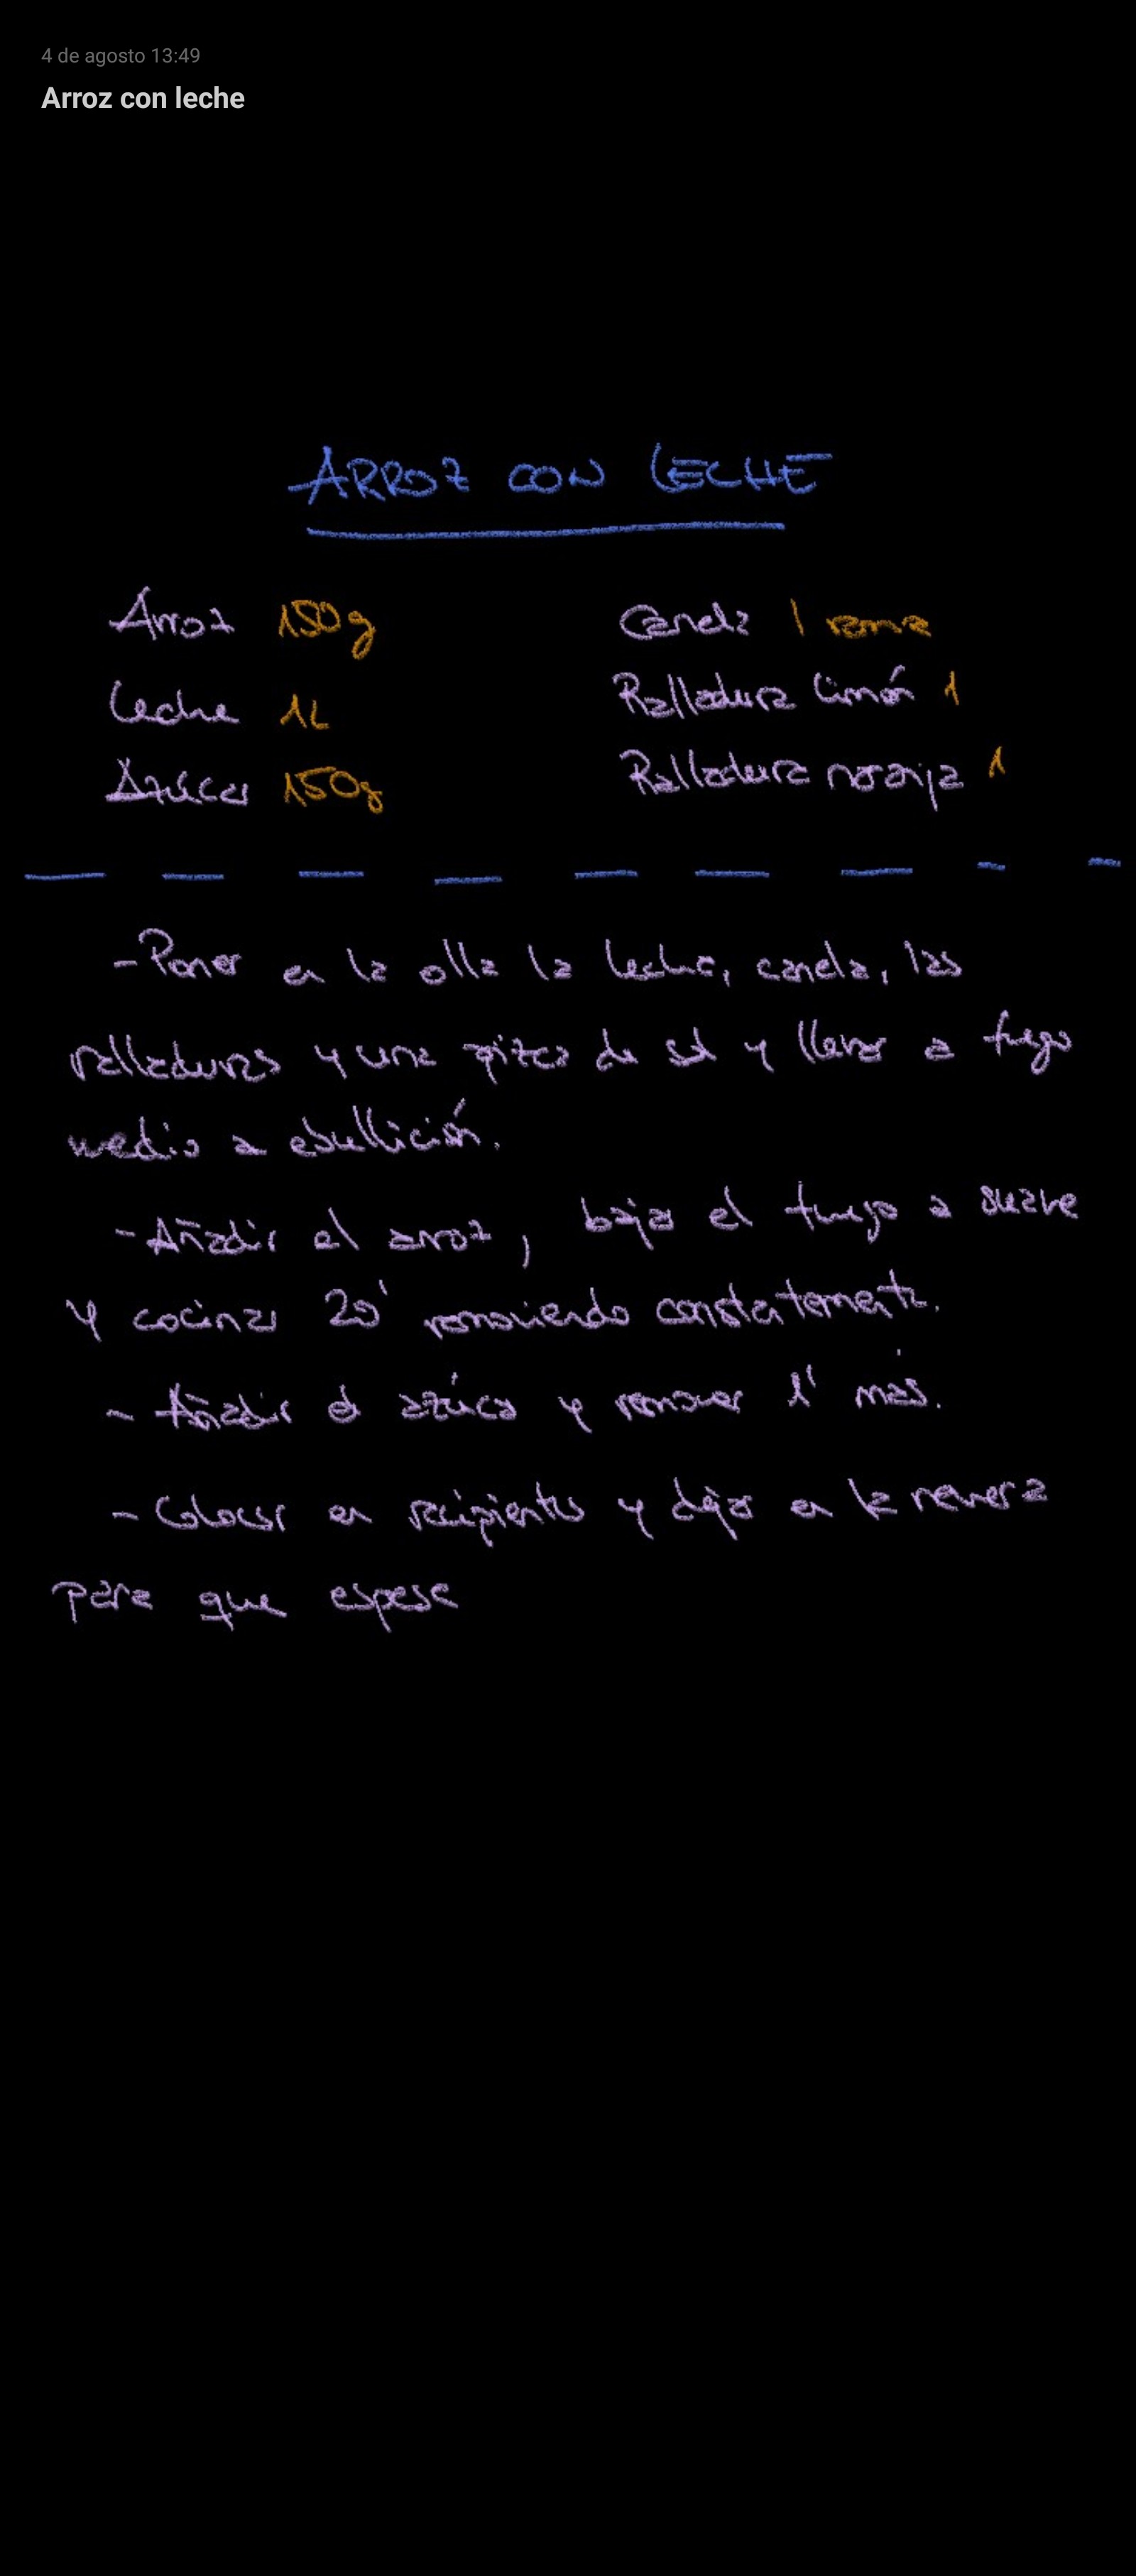 4 de agosto 13:49
Arroz con leche
ARROZ CON LECHE
Arroz 150g
Canela 1 rama
Leche 1L
Ralladura limón 1
Azúcar 150g
Ralladura naranja 1
- Poner en la olla la leche, canela, las
ralladuras y una pizca de sal y llevar a fuego
medio a ebullición.
- Añadir el arroz, bajar el fuego a suave
y cocinar 20' removiendo constatemente.
- Añadir el azúcar y remover 1' más.
- Colocar en recipientes y dejar en la nevera
para que espese